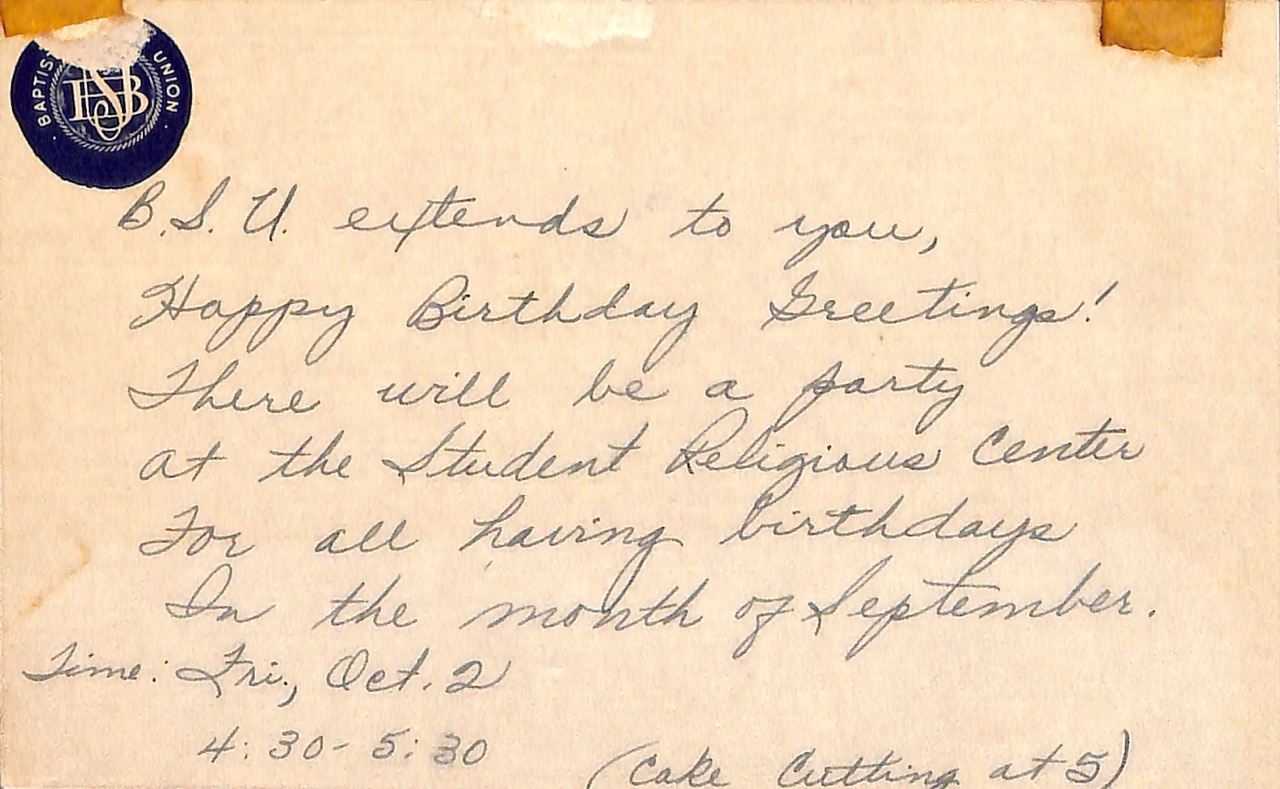 BAPTIS UNION
BSU
B.S.U. extends to you,
Happy Birthday Greetings!
There will be a party
at the Student Religious Center
For all having birthdays
In the month of September.
Time: Fri., Oct. 2
4:30-5:30
(Cake Cutting at 5)